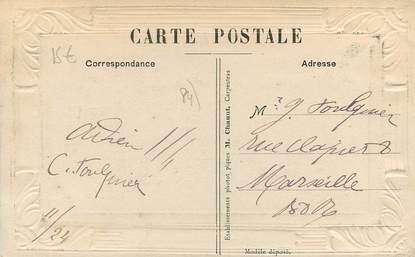 CARTE POSTALE
Correspondance
Adresse
15€
84)
Adieu !!!
C. Foulquier
11/24
Établissements photot piques M. Chanut, Carpentras
Mr J. Foulquier
rue Clapier 8
Marseille
B d R
Modèle déposé.